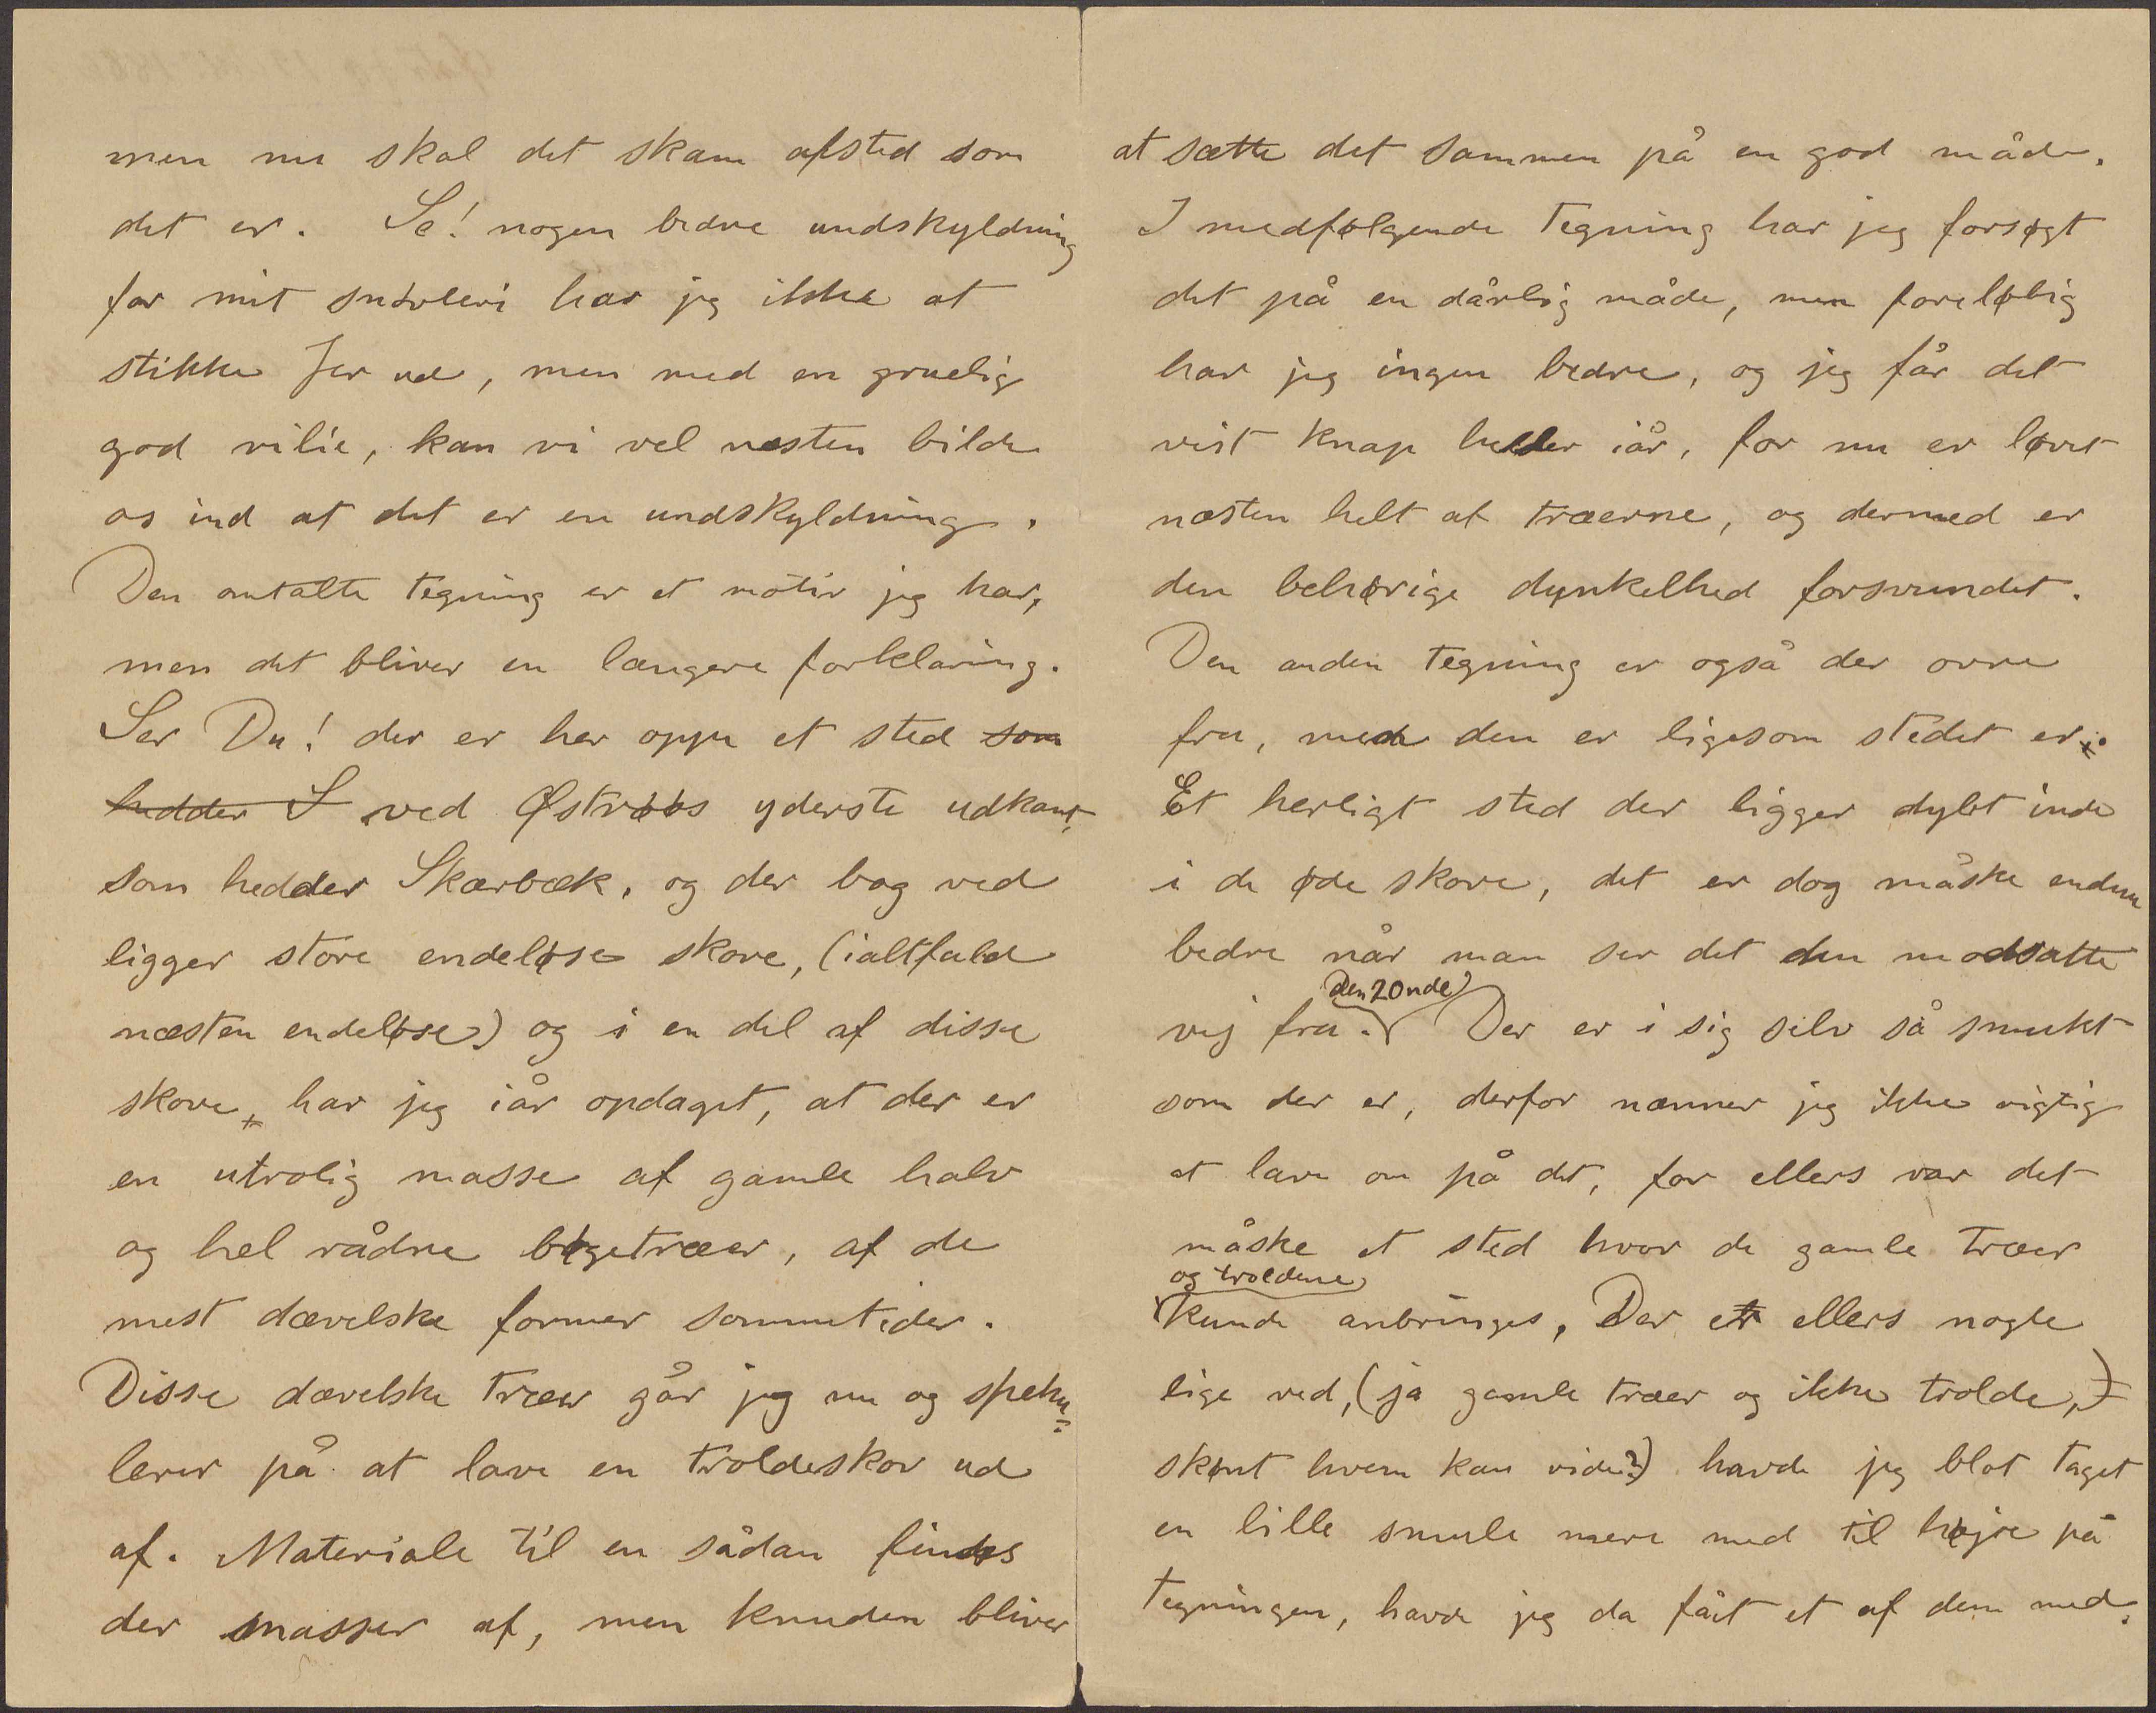 men nu skal det skam afsted som
det er. Se! nogen bedre undskyldning
for mit snövleri har jeg ikke at
stikke Jer ud, men med en gruelig
god vilie, kan vi vel næsten bilde
os ind at det er en undskyldning.
Den omtalte tegning er et motiv jeg har,
men det bliver en længere forklaring.
Ser Du! der er her oppe et sted som
hedder S ved Østrøbs yderste udkant,
som hedder Skærbæk, og der bag ved
ligger store endeløse skove, (ialtfald
næsten endeløse) og i en del af disse
skove, har jeg iår opdaget, at der er
en utrolig masse af gamle halv
og hel rådne bøgetræer, af de
mest dævelske former sommetider.
Disse dævelske træer går jeg nu og speku=
lerer på at lave en troldeskov ud
af. Materiale til en sådan findes
der masser af, men knuden bliver
at sætte det sammen på en god måde.
I medfølgende tegning har jeg forsøgt
det på en dårlig måde, men foreløbig
har jeg ingen bedre, og jeg får det
vist knap heller iår, for nu er løvet
næsten helt af træerne, og dermed er
den behørige dunkelhed forsvundet.
Den anden tegning er også der ovre
fra, men den er ligesom stedet er.
Et herligt sted der ligger dybt inde
i de øde skove, det er dog måske endnu
bedre når man ser det den modsatte
den 20nde
vej fra. Der er i sig selv så smukt
som der er, derfor nænner jeg ikke rigtig
at lave om på det, for ellers var det
måske et sted hvor de gamle træer
og troldene
kunde anbringes, Der er ellers nogle
lige ved, (ja gamle træer og ikke trolde,)
skønt hvem kan vide?) havde jeg blot taget
en lille smule mere med til højre på
tegningen, havde jeg da fået et af dem med.